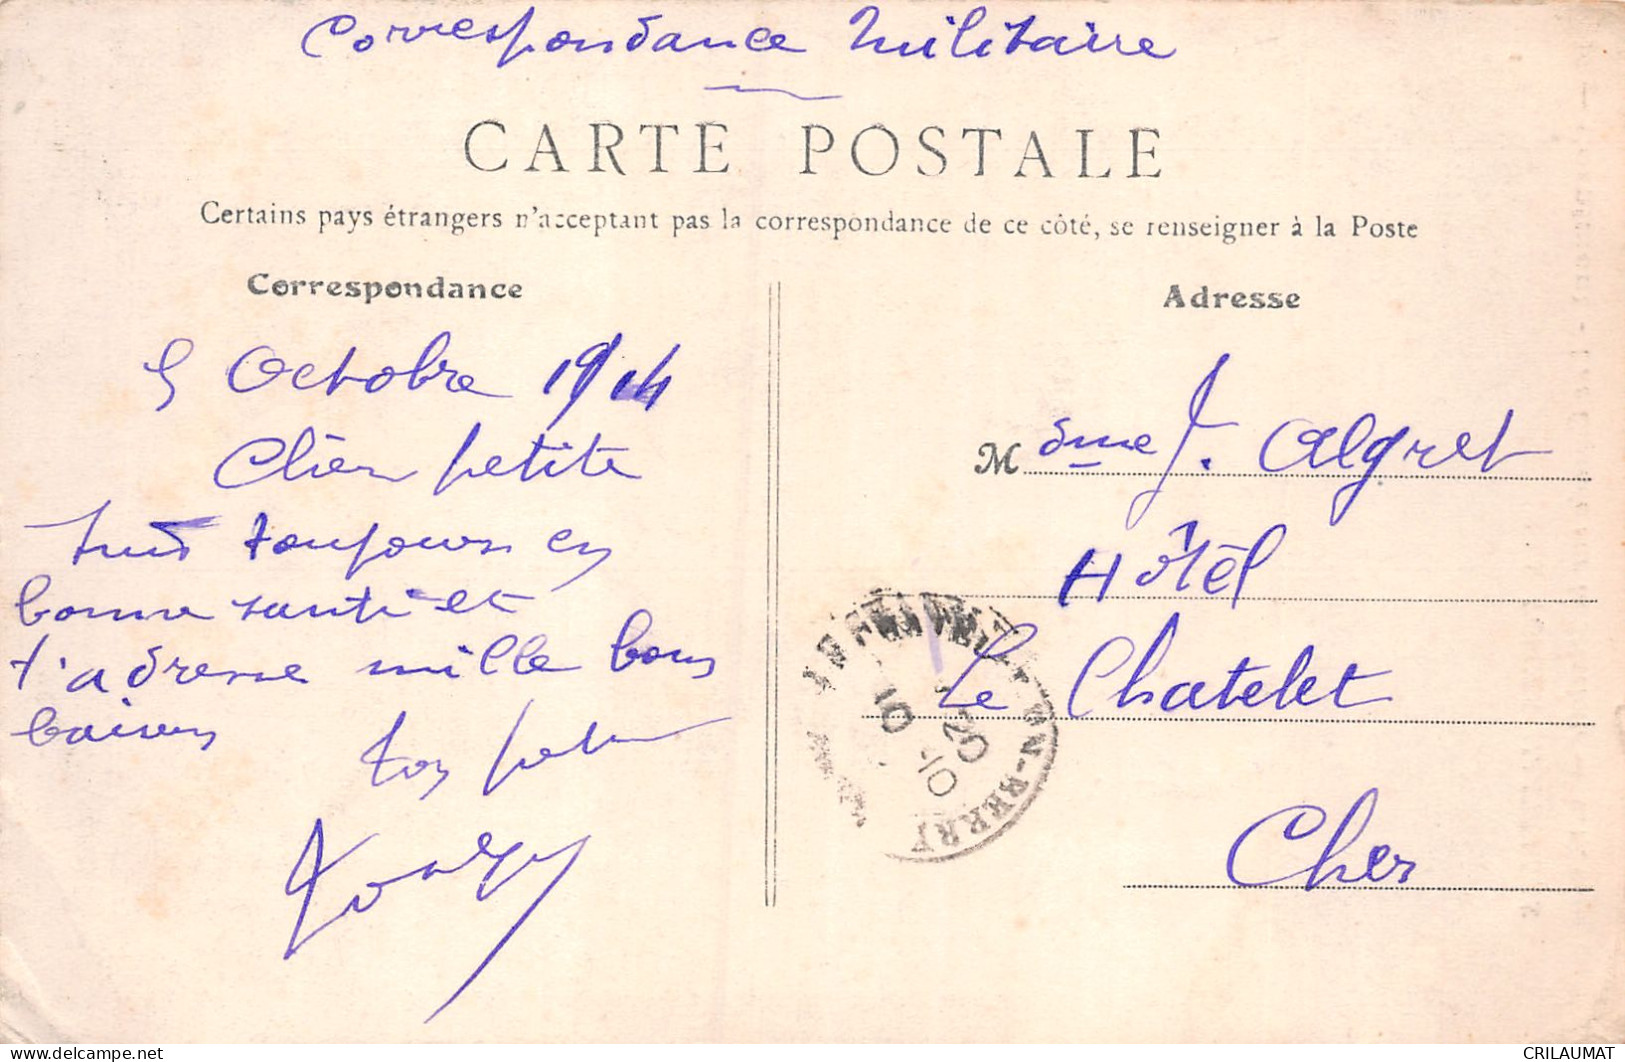 Correspondance Militaire
CARTE POSTALE
Certains pays étrangers n'acceptant pas la correspondance de ce côté, se renseigner à la Poste
Correspondance
Adresse
5 Octobre 1914
Chère petite
Suis toujours en
bonne santé et
t'adresse mille bons
baisers
ton
Mdme J. Algret
Hôtel
Le Chatelet
Cher
EN-BERRY
CRILAUMAT